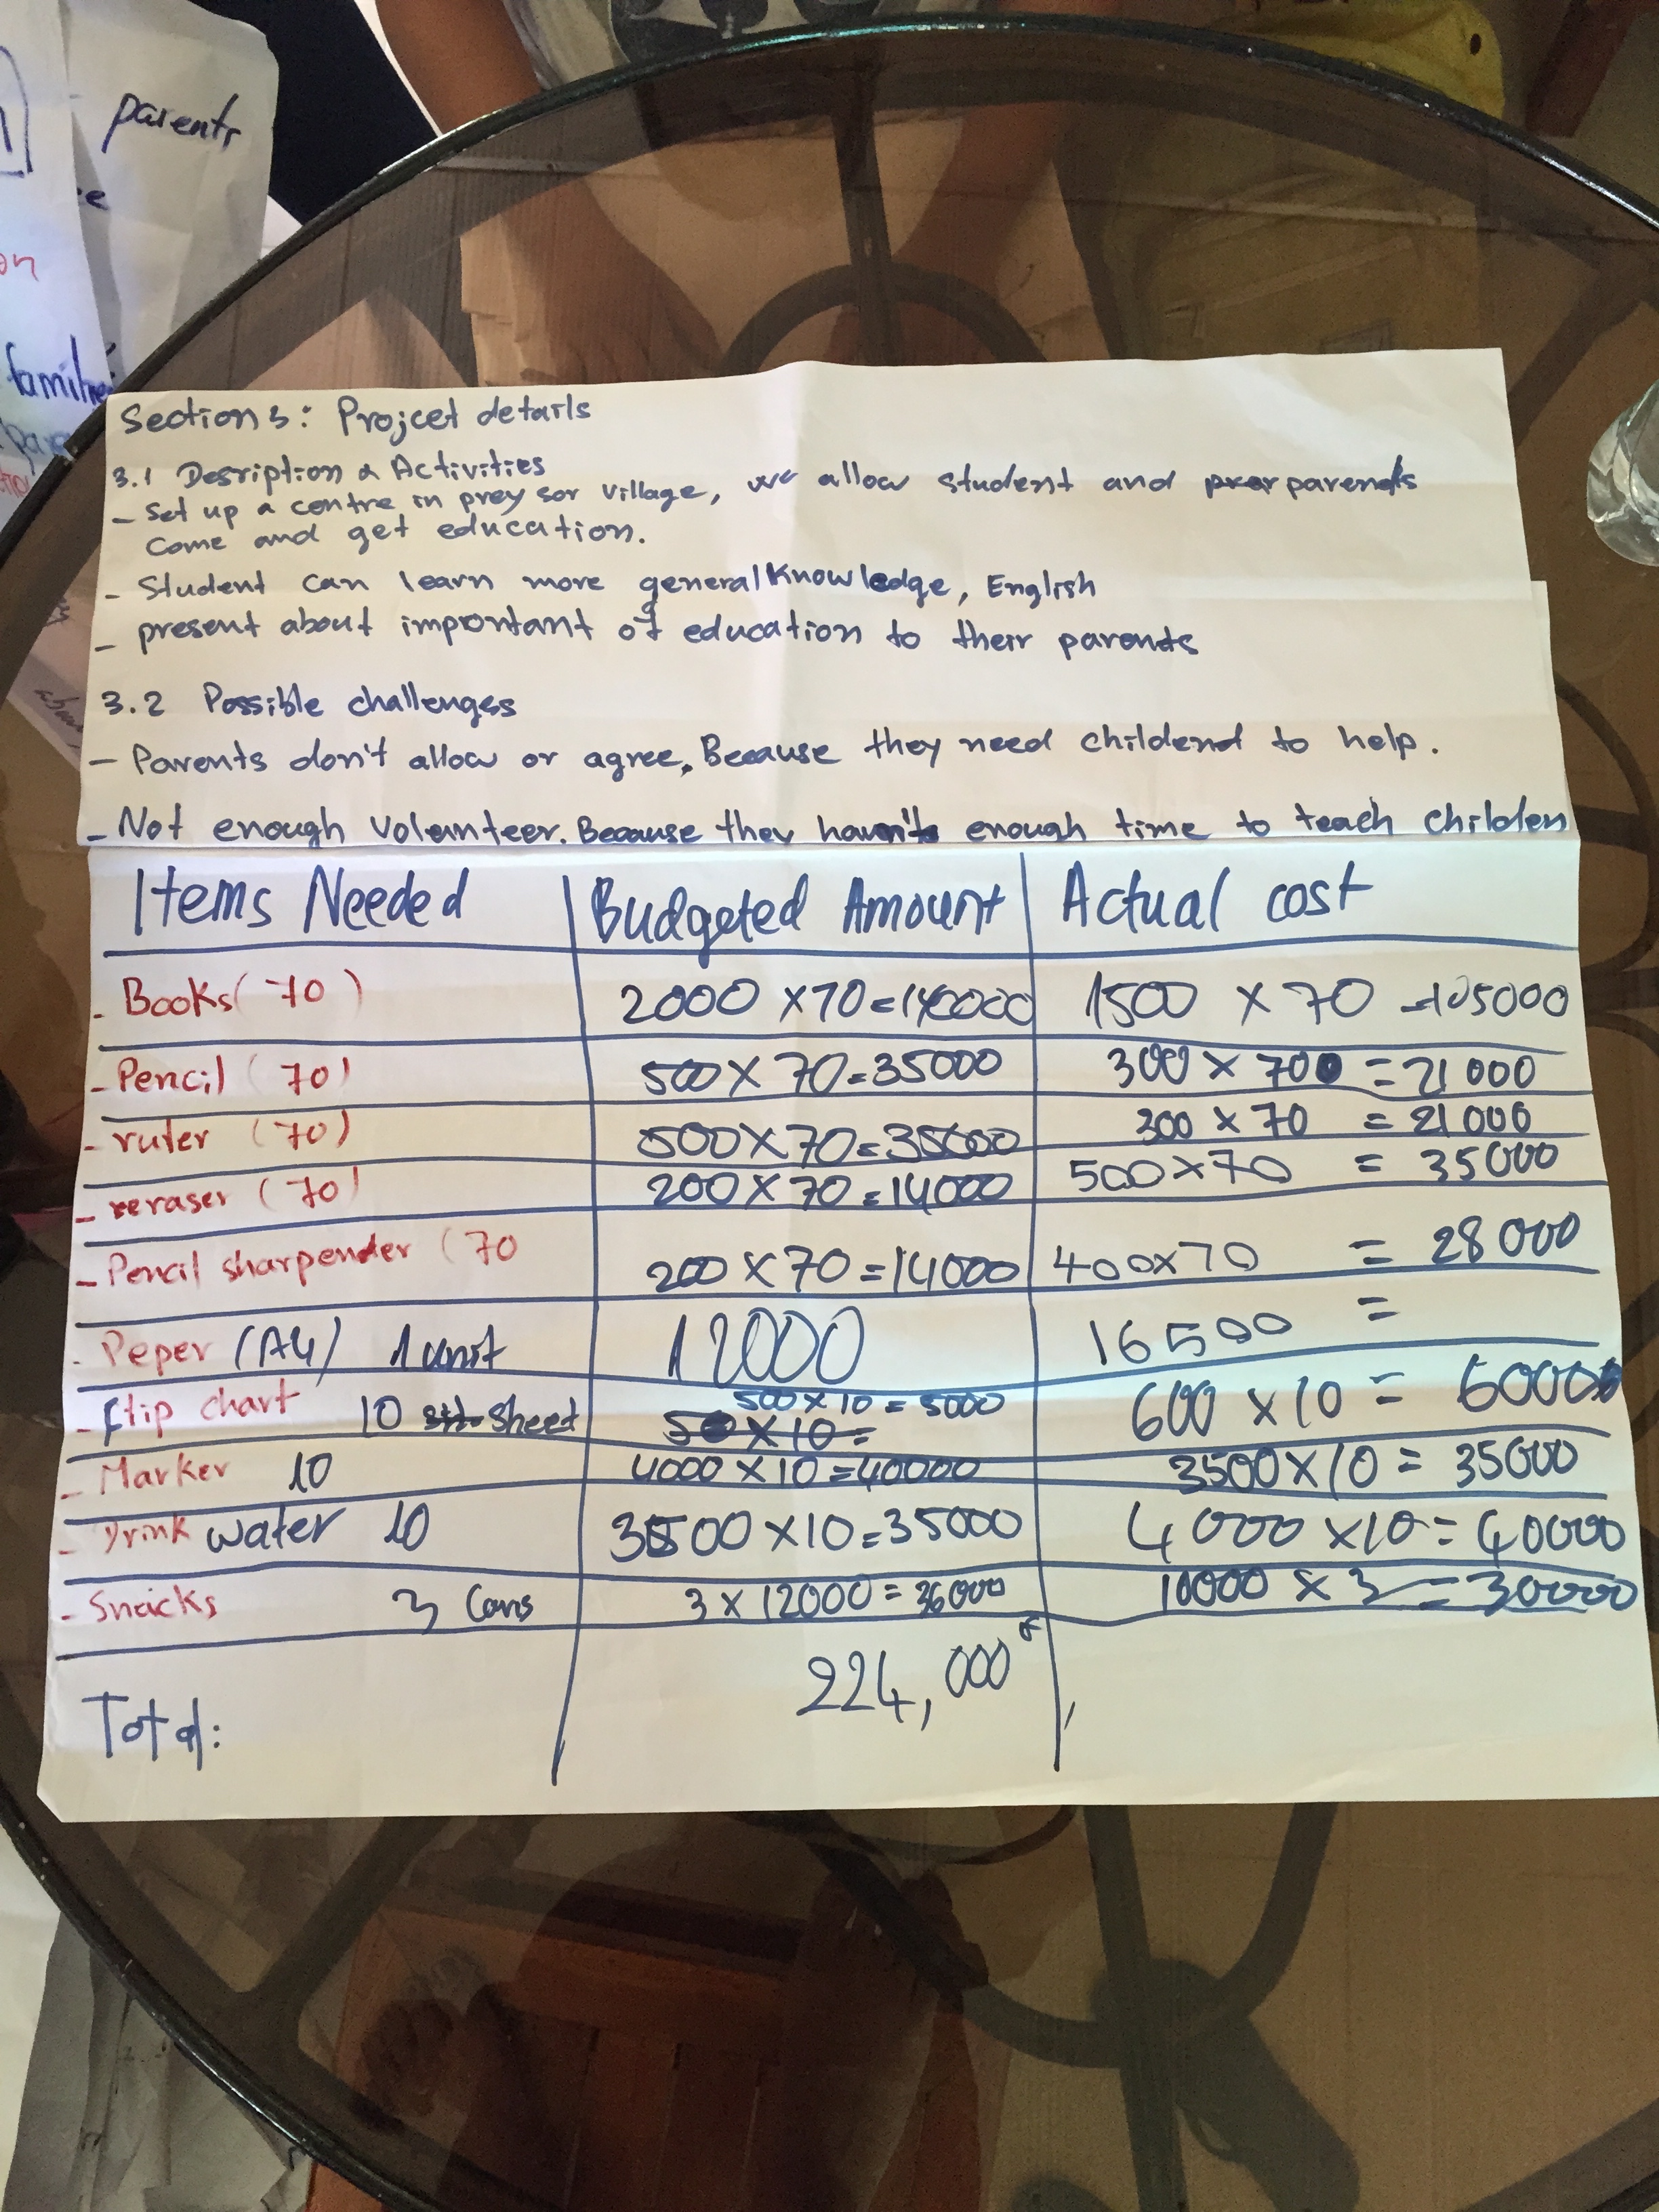 parents
families
Section 3: Projcet details
3.1 Desription & Activities
- Set up a centre in prey sor village, we allow student and parents
come and get education.
- Student can learn more general Knowledge, English
- present about important of education to their parents
3.2 Possible challenges
- Parents don't allow or agree, Because they need childend to help.
- Not enough Volunteer. Because they haven't enough time to teach children
Items Needed Budgeted Amount Actual cost
- Books (70) 2000 x 70 = 140000 1500 x 70 = 105000
- Pencil (70) 500 x 70 = 35000 300 x 70 = 21000
- ruler (70) 500 x 70 = 35000 300 x 70 = 21000
- eraser (70) 200 x 70 = 14000 500 x 70 = 35000
- Pencil sharpender (70 200 x 70 = 14000 400 x 70 = 28000
- Peper (A4) 1 unit 12000 16500 =
- Flip chart 10 sheet 500 x 10 = 5000 600 x 10 = 6000
50 x 10 =
- Marker 10 4000 x 10 = 40000 3500 x 10 = 35000
- Drink water 10 3500 x 10 = 35000 4000 x 10 = 40000
- Snacks 3 Cans 3 x 12000 = 36000 10000 x 3 = 30000
Total: 224,000